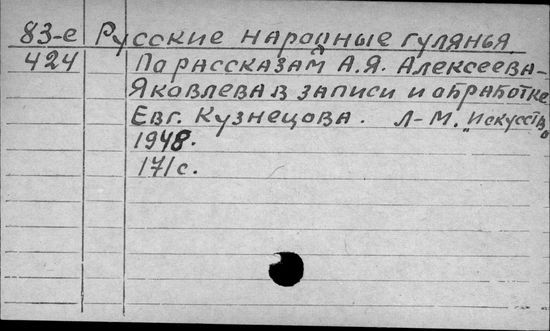 83-е Русские народные гулянья.
424 По рассказам А.Я. Алексеева-
Яковлева в записи и обработке
Евг. Кузнецова. Л-М. „Искусство"
1948.
171с.